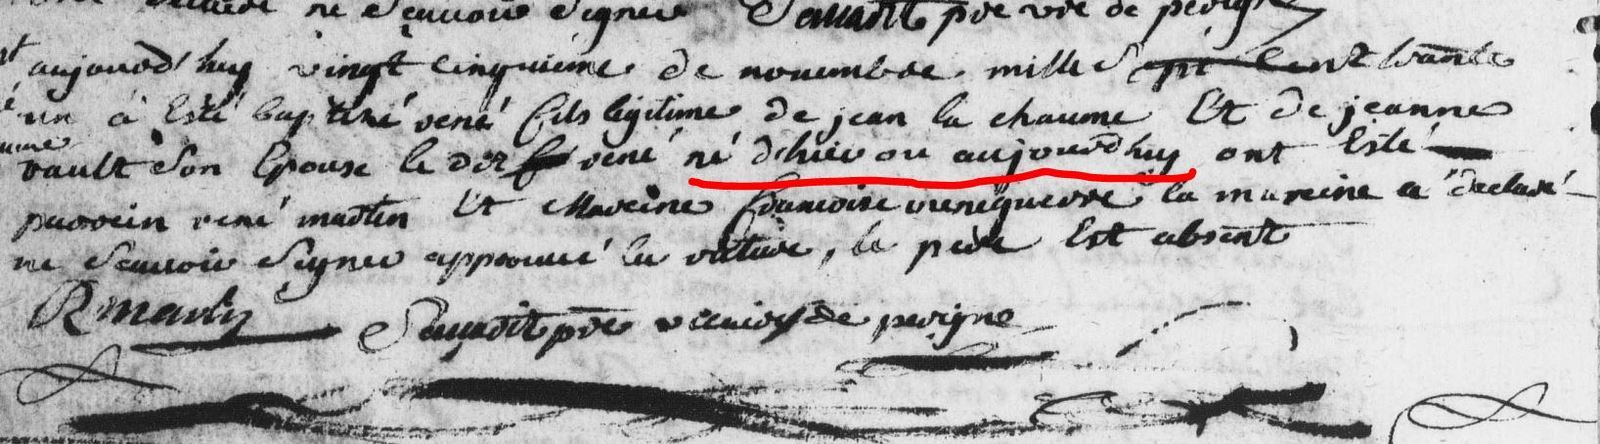 declaré ne sçauoir signer Sauuadit pre vre de perigne
aujourd'huy vingt cinquiéme de nouembre mille sept cent trante
un à esté baptisé rené fils légitime de jean la chaume Et de jeanne
vault son Epouse le dit rené né d'hier ou aujourd'huy ont Esté
parrein rené martin Et Mareine francoise la mareine a declaré
ne sçauoir signer approuué la rature, le pere Est absent
R martin
pre vicaire de perigne